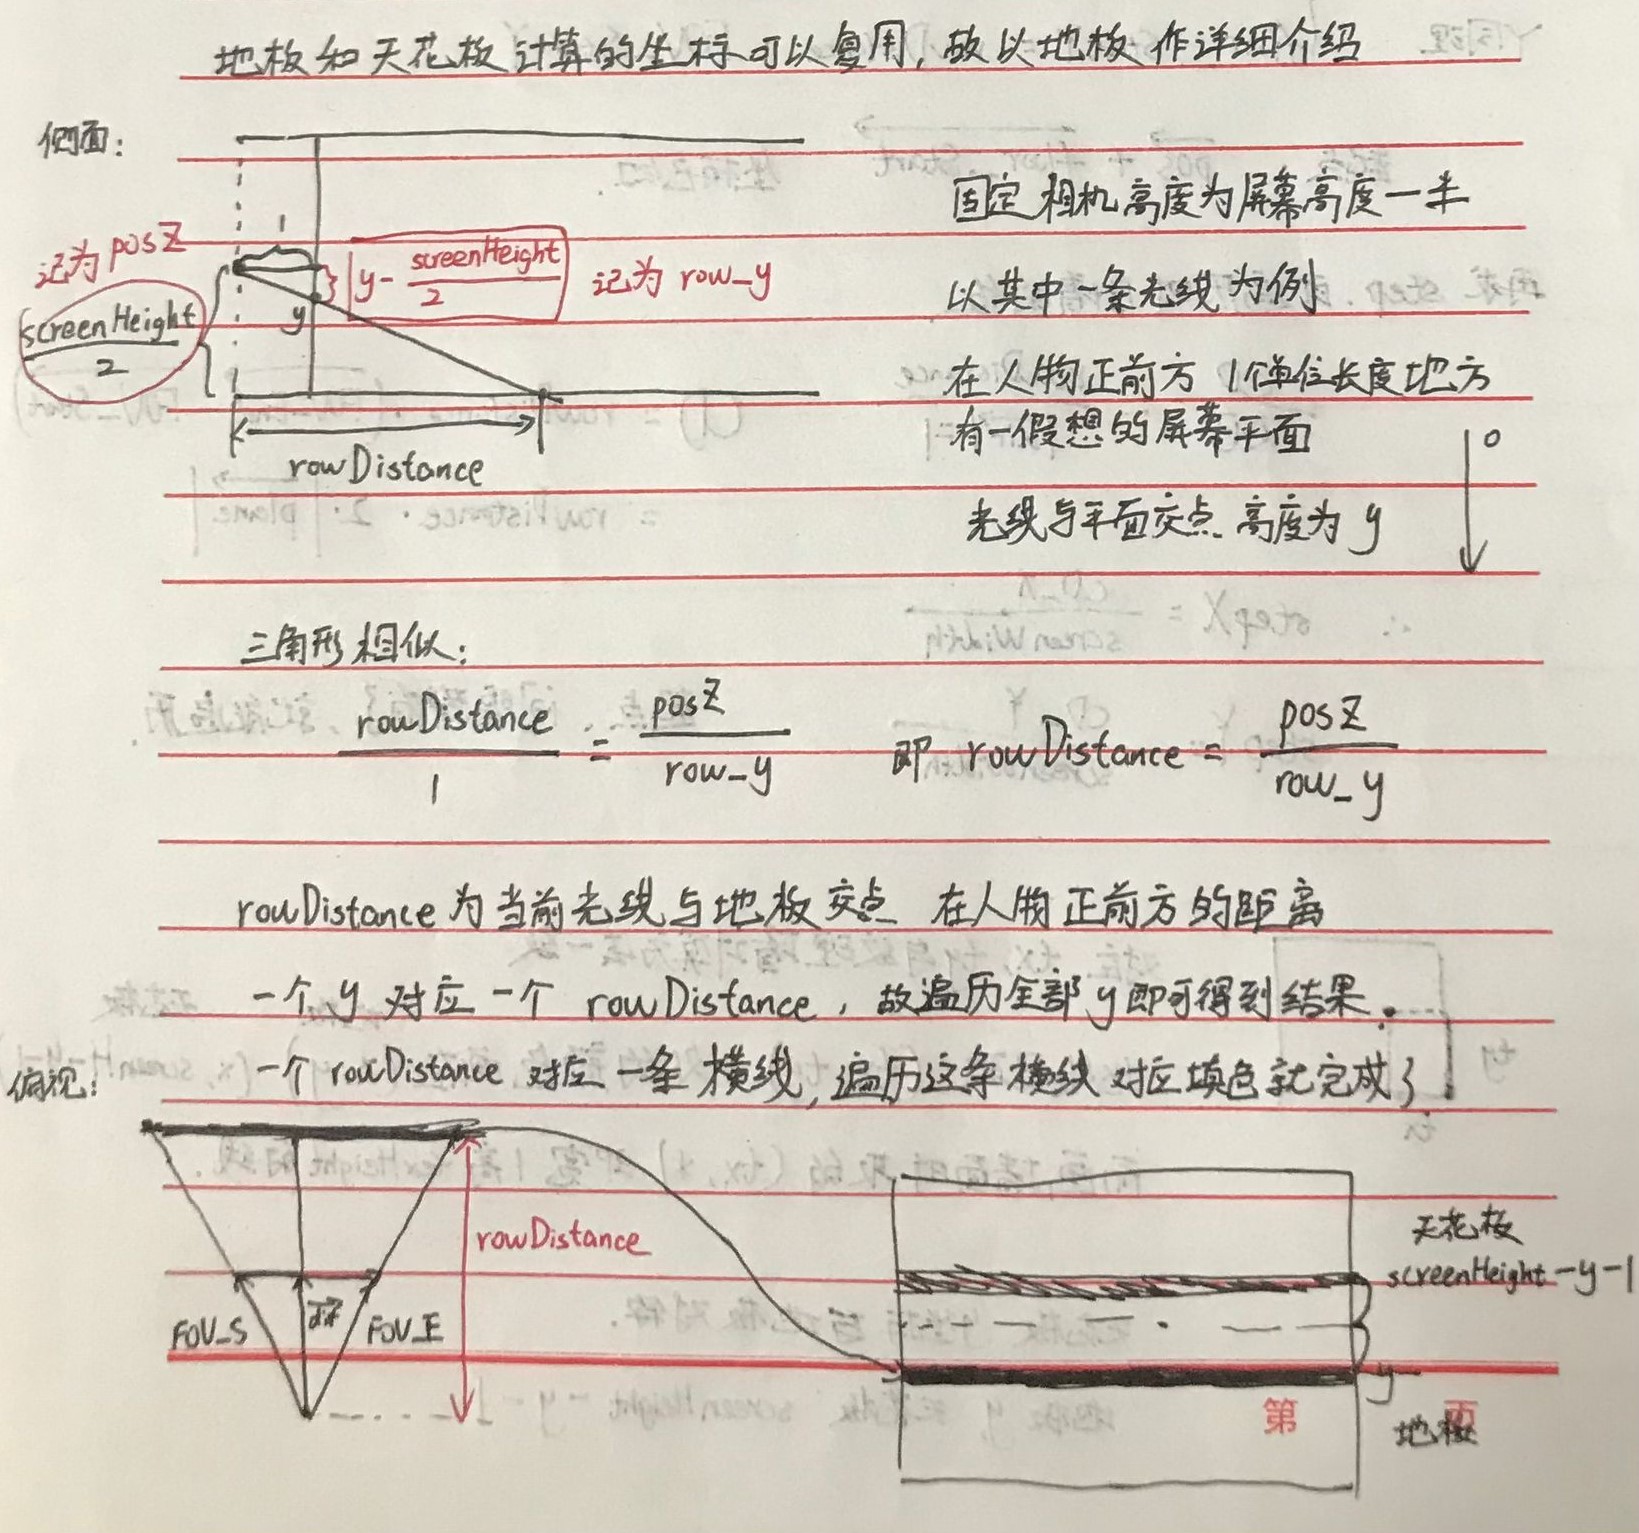 地板和天花板计算的坐标可以复用,故以地板作详细介绍
侧面:
固定相机高度为屏幕高度一半
记为 posZ
1
|y - screenHeight/2| 记为 row_y
以其中一条光线为例
screenHeight/2
y
在人物正前方 1个单位长度地方
有一假想的屏幕平面
0
rowDistance
光线与平面交点 高度为 y
三角形相似:
rowDistance/1 = posZ/row_y 即 rowDistance = posZ/row_y
rowDistance 为当前光线与地板交点 在人物正前方的距离
一个 y 对应一个 rowDistance, 故遍历全部 y 即可得到结果.
俯视: 一个 rowDistance 对应一条横线, 遍历这条横线对应填色就完成了
rowDistance
天花板
screenHeight-y-1
FOV_S dir FOV_E
y
第 页
地板